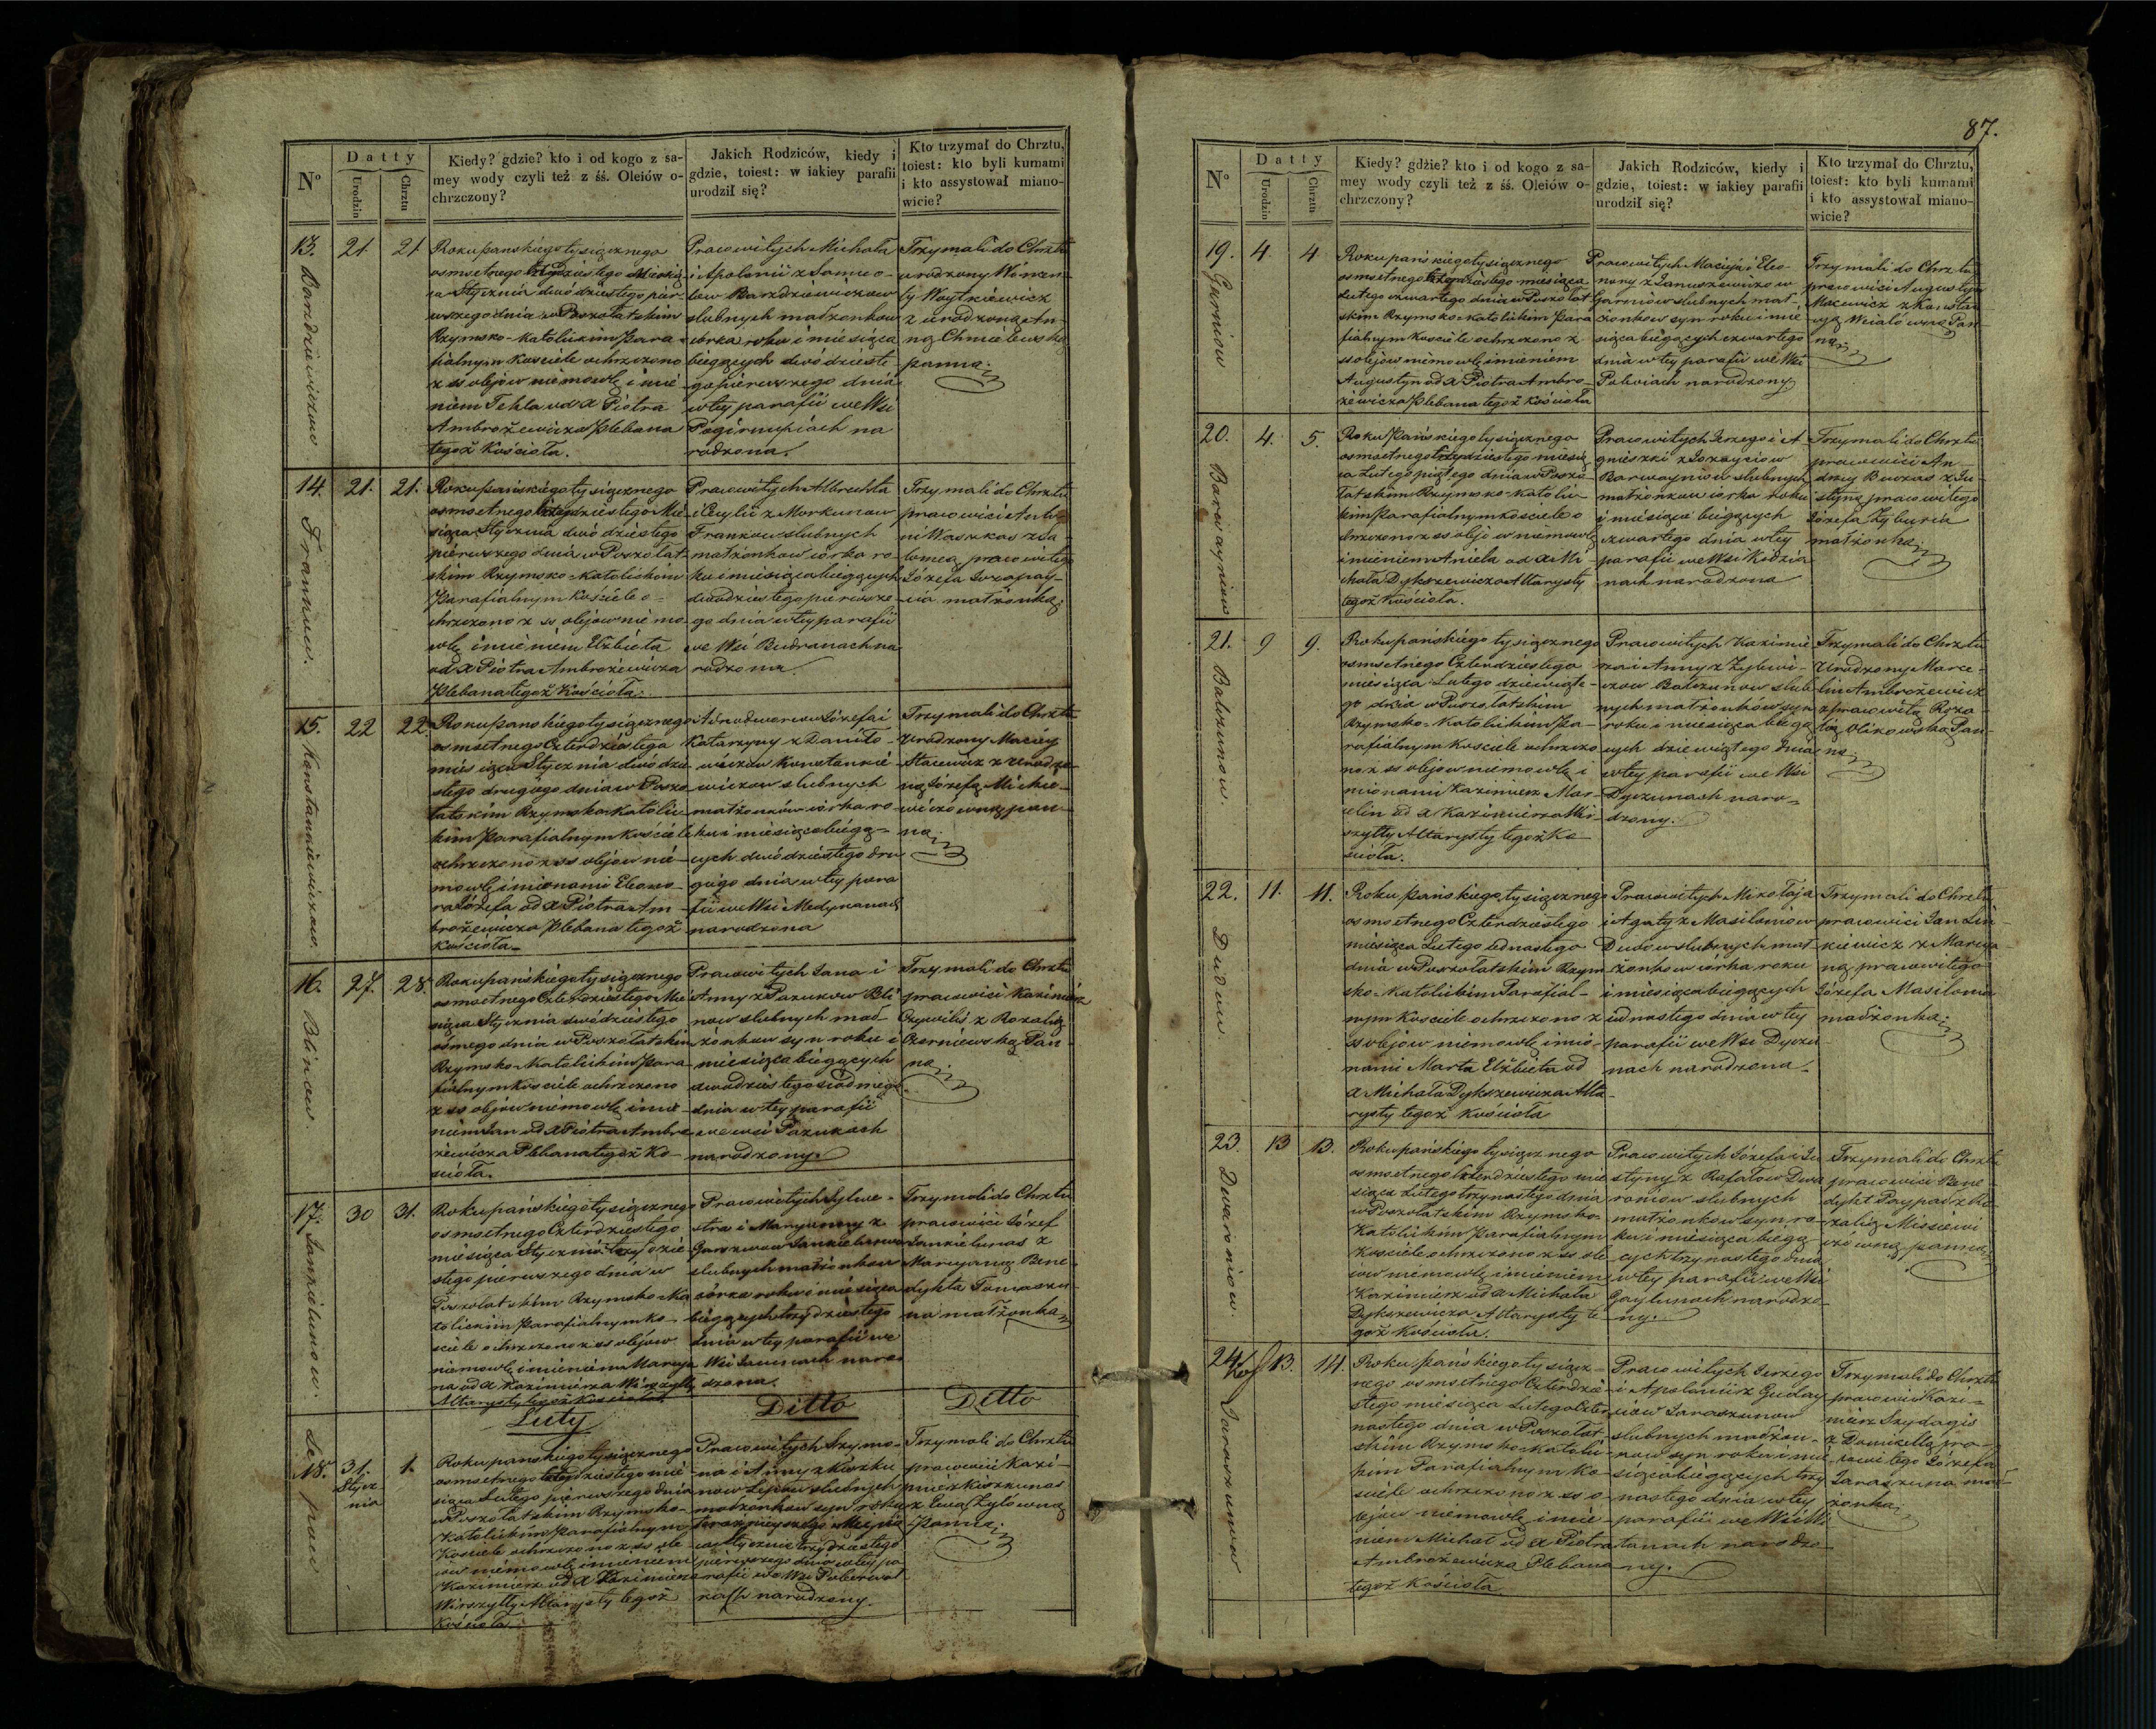 87.
N°
Datty
Urodzin
Chrztu
Kiedy? gdzie? kto i od kogo z sa-
mey wody czyli też z śś. Oleiów o-
chrzczony?
Jakich Rodziców, kiedy i
gdzie, toiest: w iakiey parafii
urodził się?
Kto trzymał do Chrztu,
toiest: kto byli kumami
i kto assystował miano-
wicie?
13.
21
21
Roku pańskiego tysiącznego
osmsetnego Miesią
ca Stycznia dwódziestego pier-
wszego dnia w Poszołatskim
Rzymsko-Katolickim Para-
fialnym Kościele ochrzczono
z ss olejow niemowlę imie
niem Tekla od X Piotra
Ambrożewicza Plebana
tegoż Kościoła.
Pracowitych Michała
i Apolonii z
slubnych małżonkow
córka roku i miesiąca
bieżących dwódzieste
go pierwszego dnia
w tey parafii we Wsi
na
rodzona.
Trzymali do Chrztu
urodzony
Woytkiewicz
z urodzoną An-
ną Chmielewską
panną
14.
21.
21.
Roku pańskiego tysiącznego
osmsetnego Mie
siąca Stycznia dwódziestego
pierwszego dnia w Poszołat
skim Rzymsko-Katolickim
Parafialnym Kościele o-
chrzczono z ss olejow niemo
wlę imieniem Elżbieta
od X Piotra Ambrożewicza
Plebana tegoż Kościoła.
Pracowitych Albrychta
z Morkunow
slubnych
małżonkow córka ro-
ku i miesiąca bieżących
dwódziestego pierwsze
go dnia w tey parafii
we Wsi Budranach na
rodzona
Trzymali do Chrztu
pracowici Anto
ni
pracowitego
Józefa
małżonką
15.
22
22.
Konstantinowiczow
Roku pańskiego tysiącznego
osmsetnego Czterdziestego
miesiąca Stycznia dwódzie
stego drugiego dnia w Poszo
łatskim Rzymsko Katolic
kim Parafialnym Kościele
ochrzczono z ss olejow nie-
mowlę imionami Eleono-
ra Józefa od X Piotra Am
brożewicza Plebana tegoż
Kościoła
Józefa i
Katarzyny z Daniło-
wiczow
slubnych
małżonków córka ro
ku i miesiąca bieżą-
cych dwódziestego dru
giego dnia w tey para
fii we Wsi Medynanach
narodzona
Trzymali do Chrztu
Urodzony Maciey
Stacewicz z Urodzo
ną Józefą Mickie-
wiczówną pan-
ną
16.
27.
28.
Blinow.
Roku pańskiego tysiącznego
osmsetnego Czterdziestego Mie
siąca Stycznia dwódziestego
ósmego dnia w Poszołatskim
Rzymsko-Katolickim Para
fialnym Kościele ochrzczono
z ss olejow niemowlę imie
niem Jan od X Piotra Ambro
żewicza Plebana tegoż Ko
ścioła.
Pracowitych Jana i
Anny z Pazukow Bli
now slubnych mał-
żonkow syn roku i
miesiąca bieżących
dwódziestego siódmego
dnia w tey parafii
we wsi Pazukach
narodzony.
Trzymali do Chrztu
pracowici Kazimierz
z Rozalią
Czerniewską Pan
ną
17.
30
31.
Jankielunow.
Roku pańskiego tysiącznego
osmsetnego Czterdziestego
miesiąca Stycznia trzydzie
stego pierwszego dnia w
Poszołatskim Rzymsko-Ka
tolickim Parafialnym Ko-
ściele ochrzczono z ss olejow
niemowlę imieniem Maryja
na od X Kazimierza Wirszyłły
Altarysty tegoż Kościoła
Pracowitych Sylwe-
stra i Maryanny z
Jankielunow
slubnych małżonkow
córka roku i miesiąca
bieżących trzydziestego
dnia w tey parafii we
Wsi naro
dzona.
Trzymali do Chrztu
pracowici Józef
Jankielunas z
Maryanną Bene
dykta
na małżonką
Luty
Ditto
Ditto
18.
31.
Stycz
nia
1.
Roku pańskiego tysiącznego
osmsetnego mie
siąca Lutego pierwszego dnia
w Poszołatskim Rzymsko-
Katolickim Parafialnym
Kościele ochrzczono z ss ole
jow niemowlę imieniem
Kazimierz od X Kazimierza
Wirszyłły Altarysty tegoż
Kościoła
Pracowitych Szymo-
na i Anny z
slubnych
małżonkow syn roku
teraznieyszego Miesią
ca Stycznia trzydziestego
pierwszego dnia w tey pa
rafii we Wsi
narodzony.
Trzymali do Chrztu
pracowici Kazi-
mierz
z Ewą Żyłowną
Panną
N°
Datty
Urodzin
Chrztu
Kiedy? gdźie? kto i od kogo z sa-
mey wody czyli też z śś. Oleiów o-
chrzczony?
Jakich Rodziców, kiedy i
gdzie, toiest: w iakiey parafii
urodził się?
Kto trzymał do Chrztu,
toiest: kto byli kumami
i kto assystował miano-
wicie?
19.
4
4
Garniow
Roku pańskiego tysiącznego
osmsetnego miesiąca
Lutego czwartego dnia w Poszołat
skim Rzymsko-Katolickim Para
fialnym Kościele ochrzczono z
ss olejow niemowlę imieniem
Augustyn od X Piotra Ambro-
żewicza Plebana tegoż Kościoła
Pracowitych Macieja i Eleo-
nory z Januszewiczow
Garniow slubnych mał-
żonkow syn roku i mie
siąca bieżących czwartego
dnia w tey parafii we Wsi
narodzony
Trzymali do Chrztu
pracowici Augustyn
Macewicz z
Pan
ną
20.
4.
5.
Roku Pańskiego tysiącznego
osmsetnego miesią
ca Lutego piątego dnia w Poszo
łatskim Rzymsko-Katolic
kim Parafialnym Kościele o
chrzczono z ss olejow niemowlę
imieniem Aniela od X Mi
chała Dykszewicza Altarysty
tegoż Kościoła.
Pracowitych Jerzego i A
gnieszki
slubnych
małżonkow córka roku
i miesiąca bieżących
czwartego dnia w tey
parafii we Wsi
narodzona
Trzymali do Chrztu
pracowici An-
drzey z Ju
styną pracowitego
Józefa
małżonką
21.
9
9.
Balczunow.
Roku pańskiego tysiącznego
osmsetnego Czterdziestego
miesiąca Lutego dziewiąte-
go dnia w Poszołatskim
Rzymsko-Katolickim Pa-
rafialnym Kościele ochrzczo
no z ss olejow niemowlę i
mionami Kazimierz Mar-
celin od X Kazimierza Wir-
szyłły Altarysty tegoż Ko
ścioła.
Pracowitych Kazimie
rza i Anny z Żylewi-
czow Balczunow slub
nych małżonków syn
roku i miesiąca bieżą
cych dziewiątego dnia
w tey parafii we Wsi
Dyczunach naro-
dzony.
Trzymali do Chrztu
Urodzony Marce-
lin Ambrożewicz
z pracowitą Roza
lią Olszowską Pan-
ną
22.
11.
11.
Dudow.
Roku Pańskiego tysiącznego
osmsetnego Czterdziestego
miesiąca Lutego jednastego
dnia w Poszołatskim Rzym
sko-Katolickim Parafial-
nym Kościele ochrzczono z
ss olejow niemowlę imio-
nami Marta Elżbieta od
X Michała Dykszewicza Alta
rysty tegoż Kościoła
Pracowitych Mikołaja
i Agaty z Masiloniow
Dudow slubnych mał
żonkow córka roku
i miesiąca bieżących
jednastego dnia w tey
parafii we Wsi Dyczu
nach narodzona
Trzymali do Chrztu
pracowici Jan Lin
kiewicz z Maryja
ną pracowitego
Józefa Masilonia
małżonką
23.
13
13.
Dwaroniow.
Roku pańskiego tysiącznego
osmsetnego Czterdziestego mie
siąca Lutego trzynastego dnia
w Poszołatskim Rzymsko-
Katolickim Parafialnym
Kościele ochrzczono z ss ole
jow niemowlę imieniem
Kazimierz od X Michała
Dykszewicza Altarysty te
goż Kościoła.
Pracowitych Józefa i Ju
styny z Rafałow Dwa
roniow slubnych
małżonkow syn ro
ku i miesiąca bieżą-
cych trzynastego dnia
w tey parafii we Wsi
Gaylunach narodzo-
ny.
Trzymali do Chrztu
pracowici Bene-
dykt z Ro
zalią Misiewi
czówną panną
24.
13.
14.
Jaraszunow
Roku pańskiego tysiącz-
nego osmsetnego Czterdzie-
stego miesiąca Lutego Czter
nastego dnia w Poszołat-
skim Rzymsko Katolic-
kim Parafialnym Ko-
ściele ochrzczono z ss o-
lejow niemowlę imie-
niem Michał od X Piotra
Ambrożewicza Plebana
tegoż Kościoła
Pracowitych Jerzego
i Apolonii z
Jaraszunow
slubnych małżon-
kow syn roku i mie-
siąca bieżących trzy
nastego dnia w tey
parafii we Wsi
narodzo
ny.
Trzymali do Chrztu
pracowici Kazi-
mierz Szydagis
z Danielą pra-
cowitego Józefa
Jaraszuna mał-
żonką